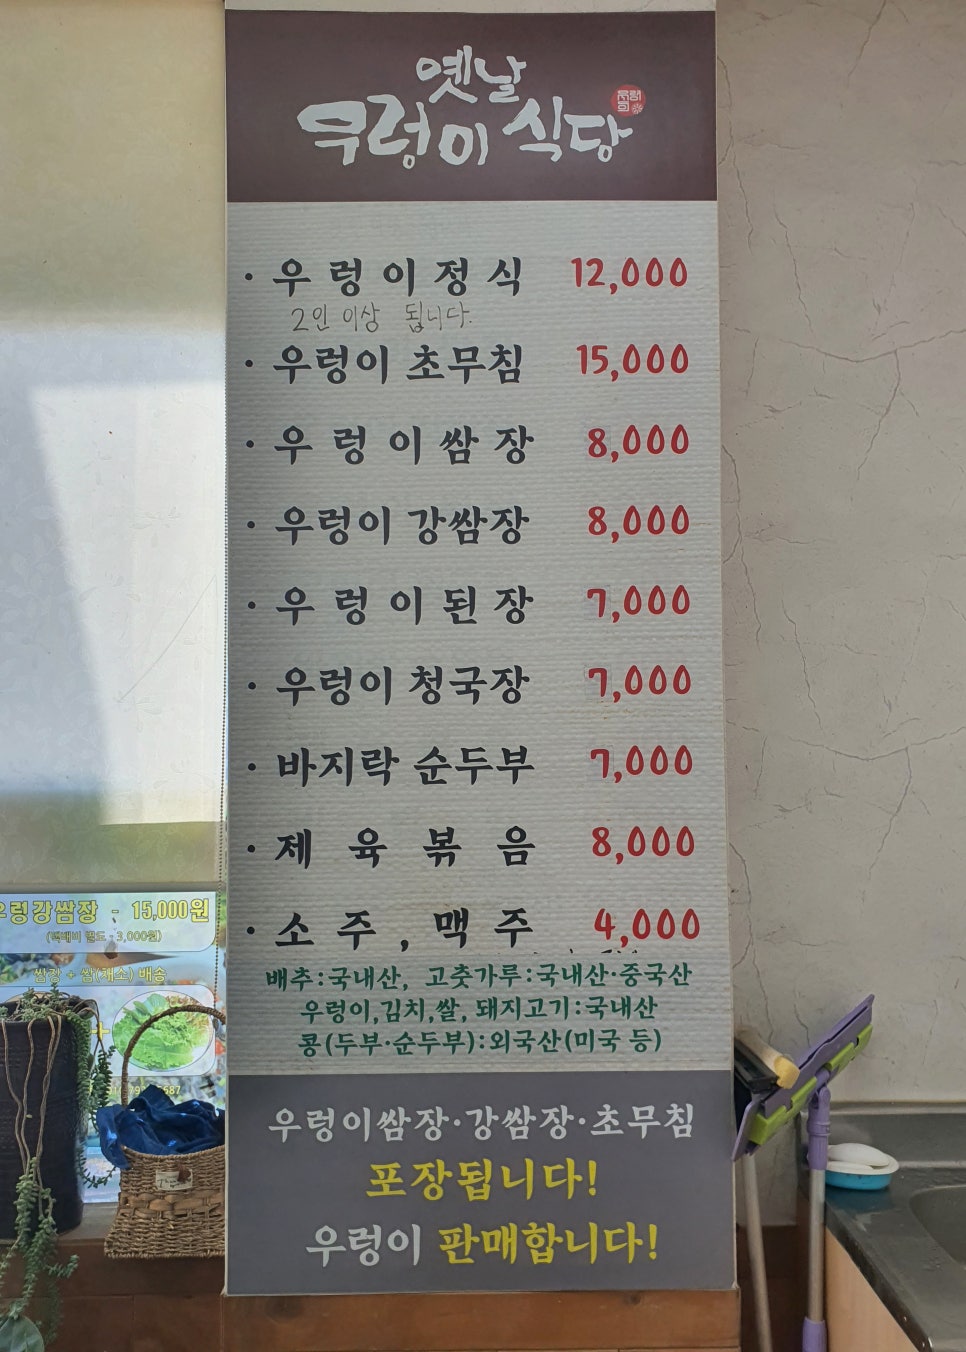 옛날
우렁이 식당
· 우렁이정식 12,000
2인 이상 됩니다.
· 우렁이 초무침 15,000
· 우렁이쌈장 8,000
· 우렁이 강쌈장 8,000
· 우렁이된장 7,000
· 우렁이 청국장 7,000
· 바지락 순두부 7,000
· 제육볶음 8,000
· 소주, 맥주 4,000
배추:국내산, 고춧가루:국내산·중국산
우렁이,김치,쌀, 돼지고기:국내산
콩(두부·순두부):외국산(미국 등)
우렁이쌈장·강쌈장·초무침
포장됩니다!
우렁이 판매합니다!
우렁강쌈장 - 15,000원
(택배비 별도 - 3,000원)
쌈장 + 쌈(채소) 배송
+